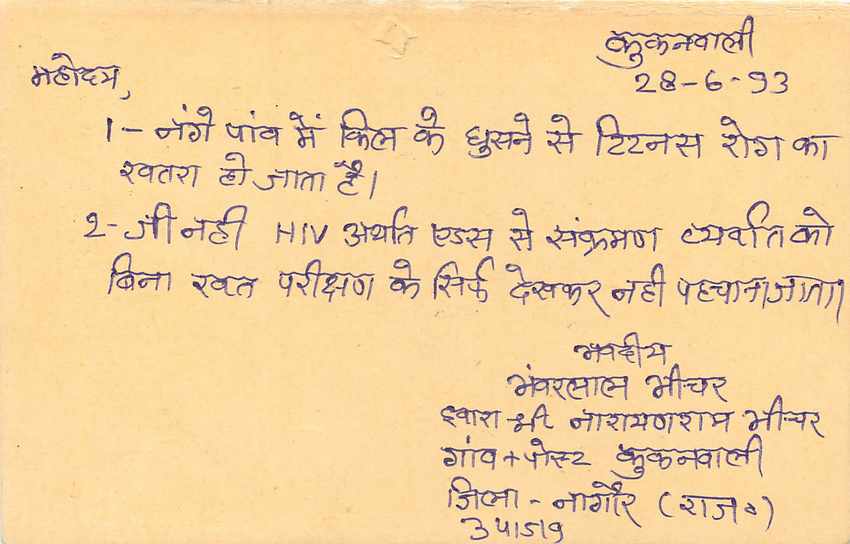 कुकनवाली
28-6-93
महोदय,
1- नंगे पांव में किल के घुसने से टिटनस रोग का
खतरा हो जाता है।
2- जी नही HIV अर्थात एडस से संक्रमण व्यक्ति को
बिना रक्त परीक्षण के सिर्फ देखकर नही पहचाना जाता।
भवदीय
भंवरलाल भीचर
द्वारा श्री नारायणराम भीचर
गांव + पोस्ट कुकनवाली
जिला - नागौर (राज॰)
341519